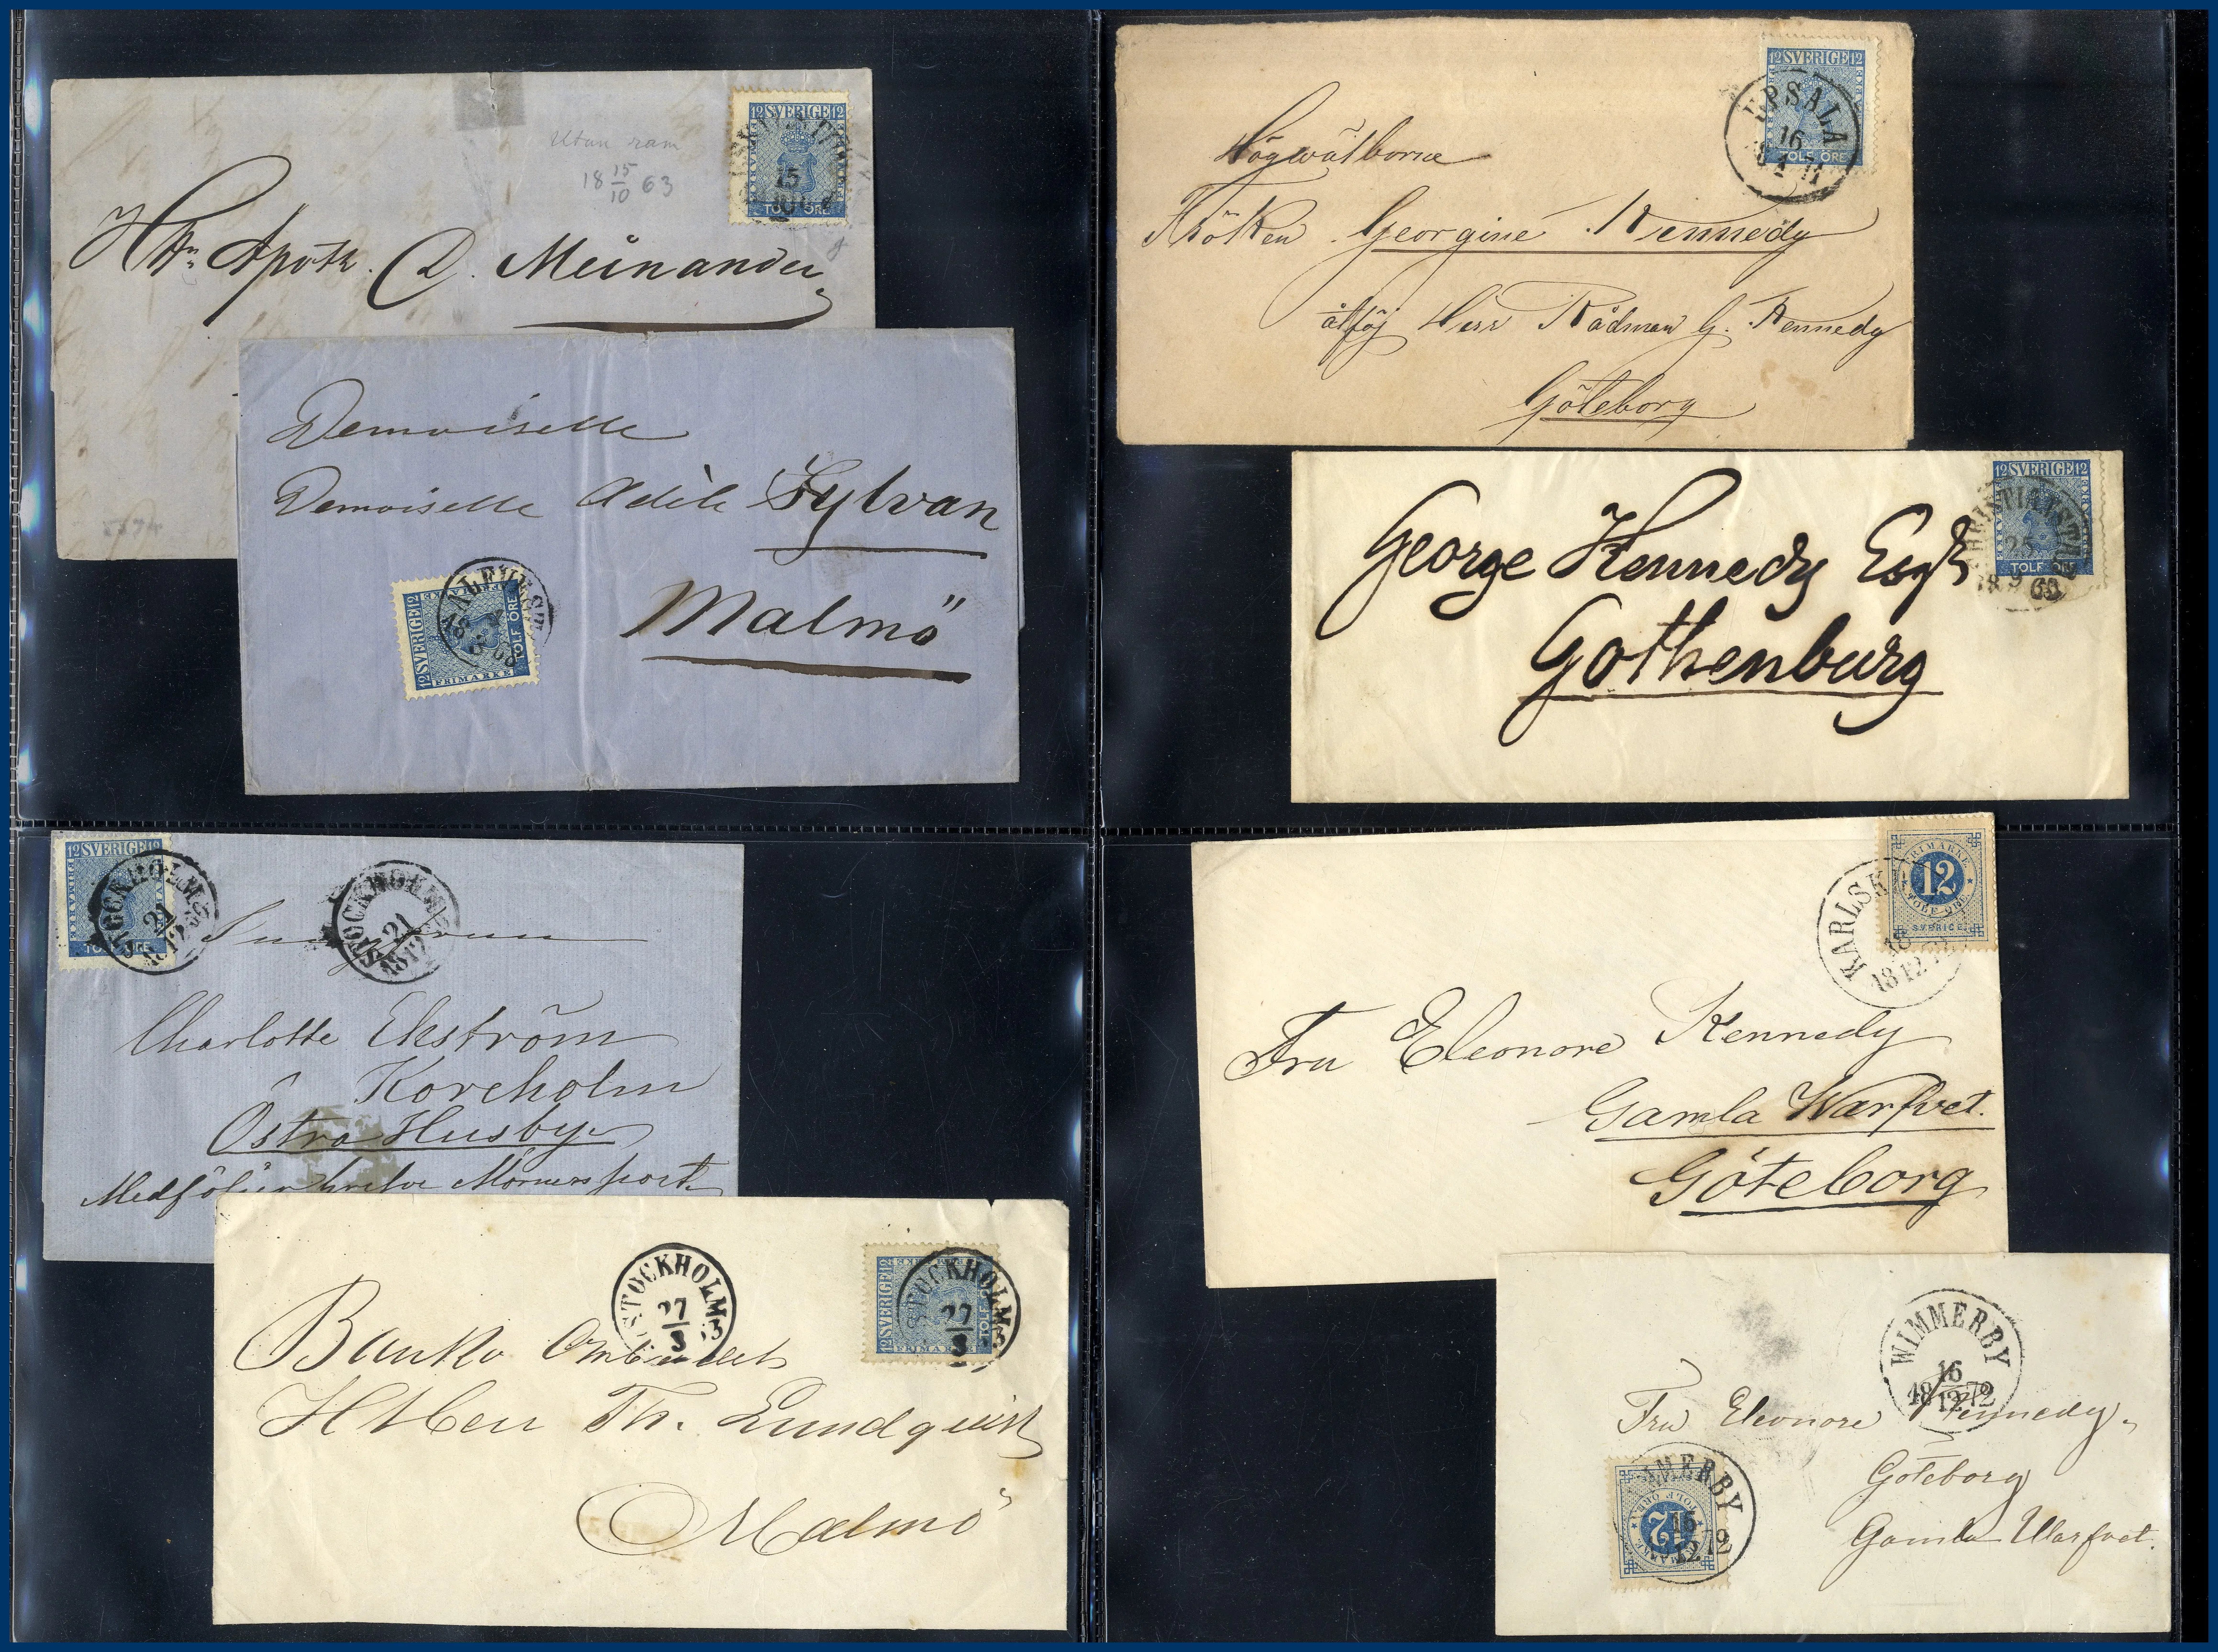 12 SVERIGE 12
15
TOLF ÖRE
Utan ram
18 15/10 63
H Hr Apoth. C. Meinander
Demoiselle
Demoiselle Adèle Sylvan
Malmö
12 SVERIGE 12
FRIMÄRKE
TOLF ÖRE
12 SVERIGE 12
UPSALA
16
TOLF ÖRE
Högwälborna
Fröken Georgine Kennedy
Herr Rådman G. Kennedy
Göteborg
12 SVERIGE 12
CHRISTIANSTAD
25
18 9 69
TOLF ÖRE
George Kennedy Esqr
Gothenburg
12 SVERIGE 12
STOCKHOLM
21
12
TOLF ÖRE
STOCKHOLM
21
12
Charlotte Ekström
Östra Husby
STOCKHOLM
27
8
12 SVERIGE 12
FRIMÄRKE
TOLF
STOCKHOLM
27
8
Banko Ombudet
H Herr Th. Lundquist
Malmö
FRIMÄRKE
12
TOLF ÖRE
SVERIGE
KARLSK
18
18 12
Fru Eleonore Kennedy
Gamla Warfvet.
Göteborg
WIMMERBY
16
18 12 72
Fru Eleonore Kennedy
Göteborg
Gamla Warfvet.
MERBY
12
TOLF ÖRE
16
12 72